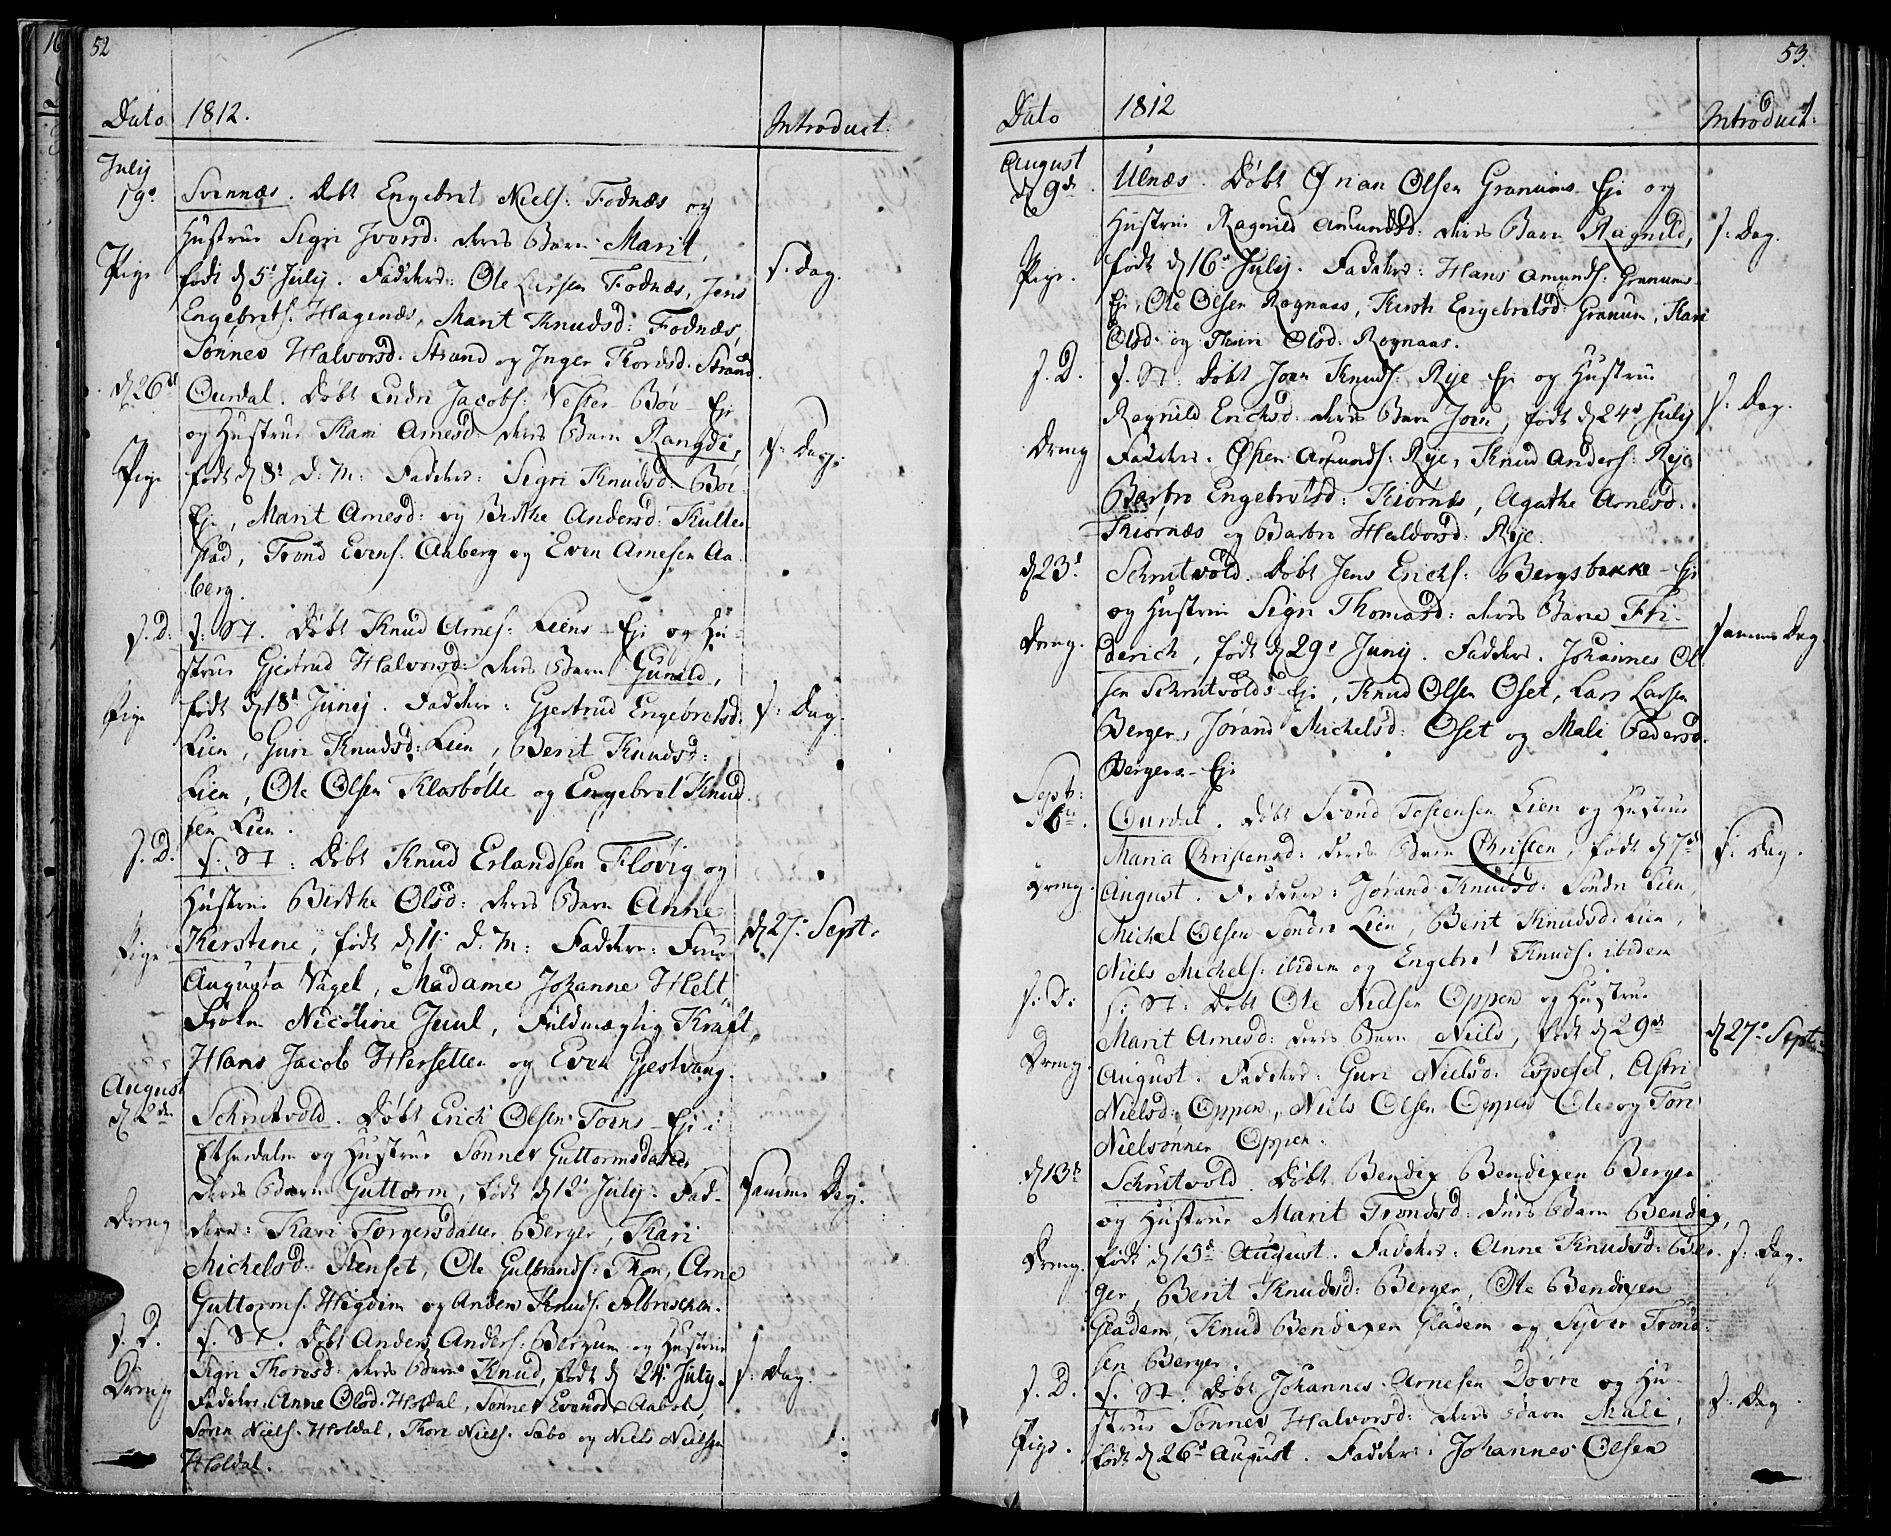 52
Dato 1812. Introduct:
July
19de Svennæs. Døbt Engebret Niels: Fodnæs og
Hustrue Sigri Iversd: deres Barn Marit,
Pige født d 5t July. Faddere: Ole Larsen Fodnæs, Jens s. Dag.
Engebrets. Hagenæs, Marit Knudsd: Fodnæs,
Sønnev Halvorsd. Strand og Inger Thordsd. Strand.
d 26de Ourdal. Døbt Endri Jacobs: Vester Bøe Eje
og Hustrue Kari Arnesd: deres Barn Rangdi, s: Dag.
Pige født d 8de d: M: Faddere: Sigri Knudsd: Bøe
Eje, Marit Arnesd: og Birthe Andersd: Kulte
stad, Trond Evens. Aaberg og Even Arnesen Aa
berg.
s. D: s: St. Døbt Knud Arnes: Liens Eje og Hu-
strue Gjertrud Halvorsd: deres Barn Gunild,
Pige født d 18de Junij. Faddere: Gjertrud Engebretsd: s: Dag.
Lien, Guri Knudsd: Lien, Berit Knudsd:
Lien, Ole Olsen Klosbølle og Engebret Knud
sen Lien.
s. D. s: St: Døbt Knud Erlandsen Fløvig og
Hustrue Birthe Olsd: deres Barn Anne
Pige Kerstine, født d 11 d. M: Faddere: Frue d 27de Sept.
Augusta Vagel, Madame Johanne Helt,
Frøkn Nicoline Juul, Fuldmægtig Kraft,
Hans Jacob Hersetten og Even Gjestvang.
August
d 2den Schrutvold. Døbt Erich Olsen Toens Eje i
Etnedalen og Hustrue Sønnev Guttormsdatter
deres Barn Guttorm, født d 12t July. Fad- samme Dag.
Dreng dere: Kari Torgersdatter Berger, Kari
Michelsd: Stenset, Ole Gulbrands: Thon, Arne
Guttorms. Higdim og Anders Knuds. Albrechen.
s. D. s. St. Døbt Anders Anders: Bergum og Hustrue
Dreng Sigri Thoresd: deres Barn Knud, født d 24 July. s: Dag.
Faddere Anne Olsd. Holdal, Sønnev Evensd Aabol,
Søren Niels. Holdal, Thore Niels. Sæbo og Niels Nielsen
Holdal.
53.
Dato 1812 Introduct:
August
d 9de. Ulnæs. Døbt Ørian Olsen Granums Eje og
Hustrue Ragnild Amundsd: deres Barn Ragnild, s: Dag.
Pige. født d 16de July. Faddere: Hans Amunds. Granums
Eje, Ole Olsen Rognaas, Kirsti Engebretsd: Granum, Kari
Olsd: og Thuri Olsd. Rognaas.
s. D. s. St: Døbt Joen Knuds: Rye Eje og Hustrue
Ragnild Erichsd: deres Barn Joen, født d 24de July s: Dag.
Dreng Faddere. Østen Amunds: Rye, Knud Anders: Rye
Barbro Engebretsd: Kiørnæs, Agathe Arnesd:
Kiørnæs og Barbro Haldorsd: Rye.
d 23de. Schrutvold. Døbt Jens Erichs: Bergsbakke Eje
og Hustrue Sigri Thomasd: deres Barn Fri- samme Dag.
Dreng. derich, født d 29de Junij. Faddere. Johannes Ol
sen Schrutvolds Eje, Knud Olsen Oset, Lars Larsen
Berger, Jørand Michelsd: Oset og Mali Pedersd.
Bergers Eje
Septb:
d 6te. Ourdal. Døbt Trond Tostensen Lien og Hustrue
Maria Christensd: deres Barn Christen, født d 7de s: Dag.
Dreng. August. Faddere: Jørand Knudsd: Søndre Lien,
Michel Olsen Søndre Lien, Berit Knudsd: Lien,
Niels Michels: ibidem og Engebret Knuds: ibidem
s: D: s: St: Døbt Ole Nielsen Oppen og Hustrue
Marit Arnesd: deres Barn Niels, født d 29de d 27de Septb:
Dreng. August. Faddere: Guri Nielsd: Espeset, Astri
Nielsd: Oppen, Niels Olsen Oppen Ole og Tore
Nielsønner Oppen.
d 13de Schrutvold. Døbt Bendix Bendixen Berger
og Hustrue Marit Trondsd: deres Barn Bendix,
Dreng. født d 15de August. Faddere: Anne Knudsd: Ber- s: Dag.
ger, Berit Knudsd: Berger, Ole Bendixen
Gladem, Knud Bendixen Gladem og Syver Trond-
sen Berger.
s. D. s. St. Døbt Johannes Arnesen Dovre og Hu-
strue Sønnev Halvorsd: deres Barn Mali, s: Dag.
Pige. født d 26de August. Faddere: Johannes Olsen